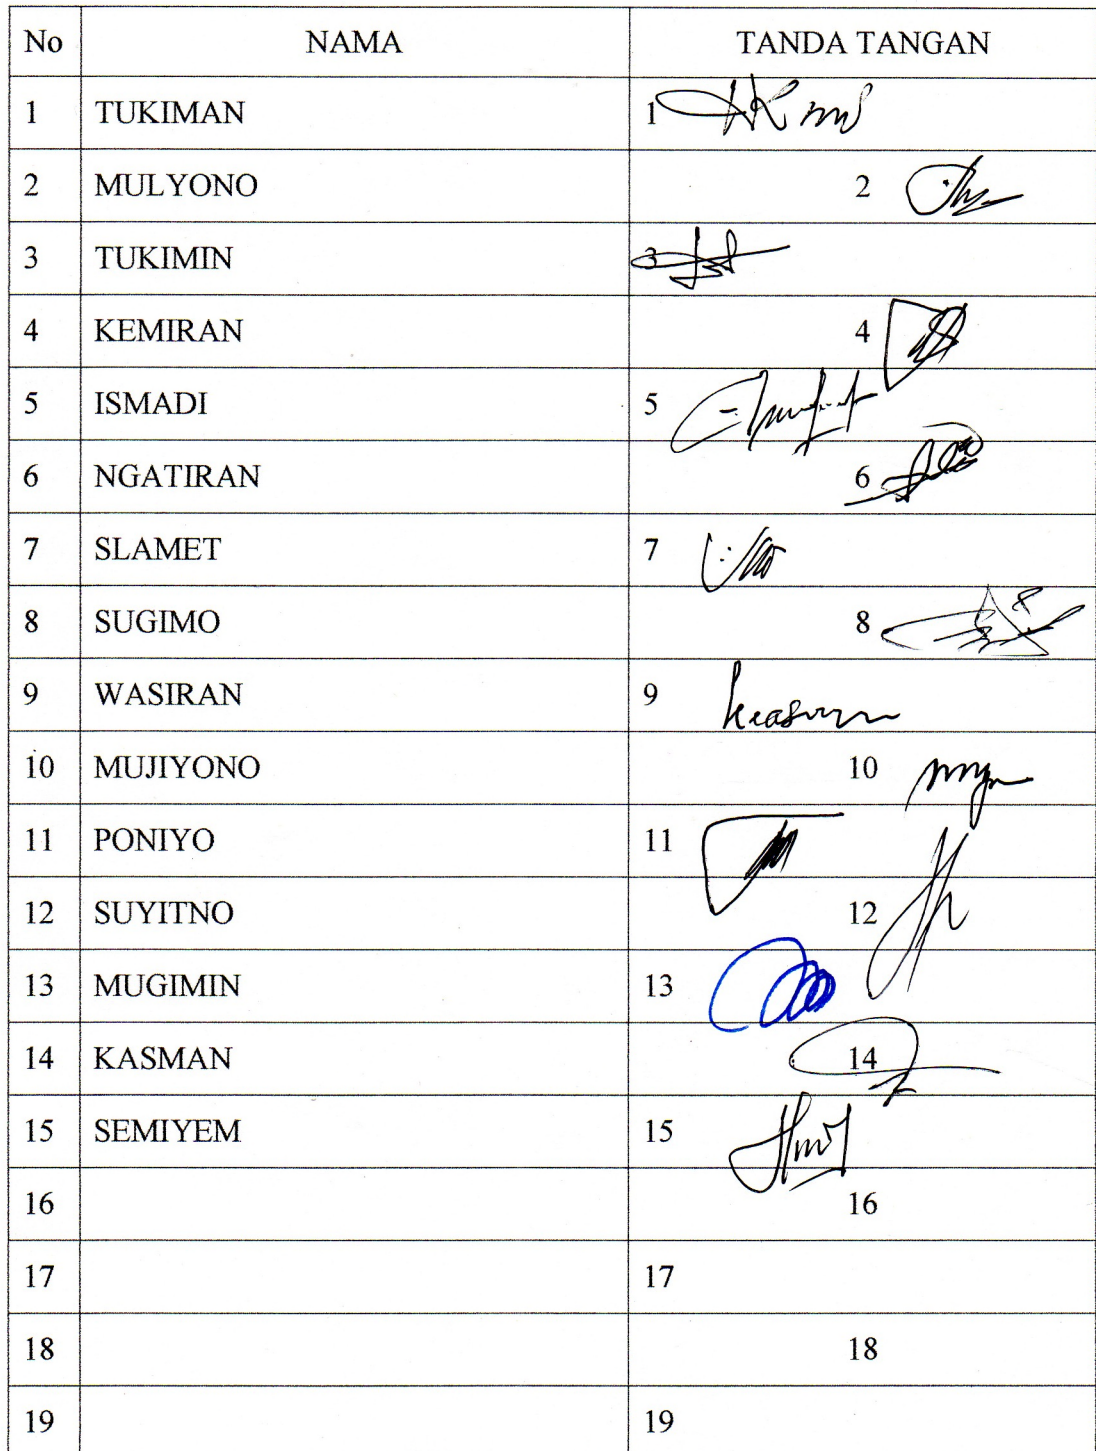 No NAMA TANDA TANGAN
1 TUKIMAN 1
2 MULYONO 2
3 TUKIMIN 3
4 KEMIRAN 4
5 ISMADI 5
6 NGATIRAN 6
7 SLAMET 7
8 SUGIMO 8
9 WASIRAN 9
10 MUJIYONO 10
11 PONIYO 11
12 SUYITNO 12
13 MUGIMIN 13
14 KASMAN 14
15 SEMIYEM 15
16 16
17 17
18 18
19 19